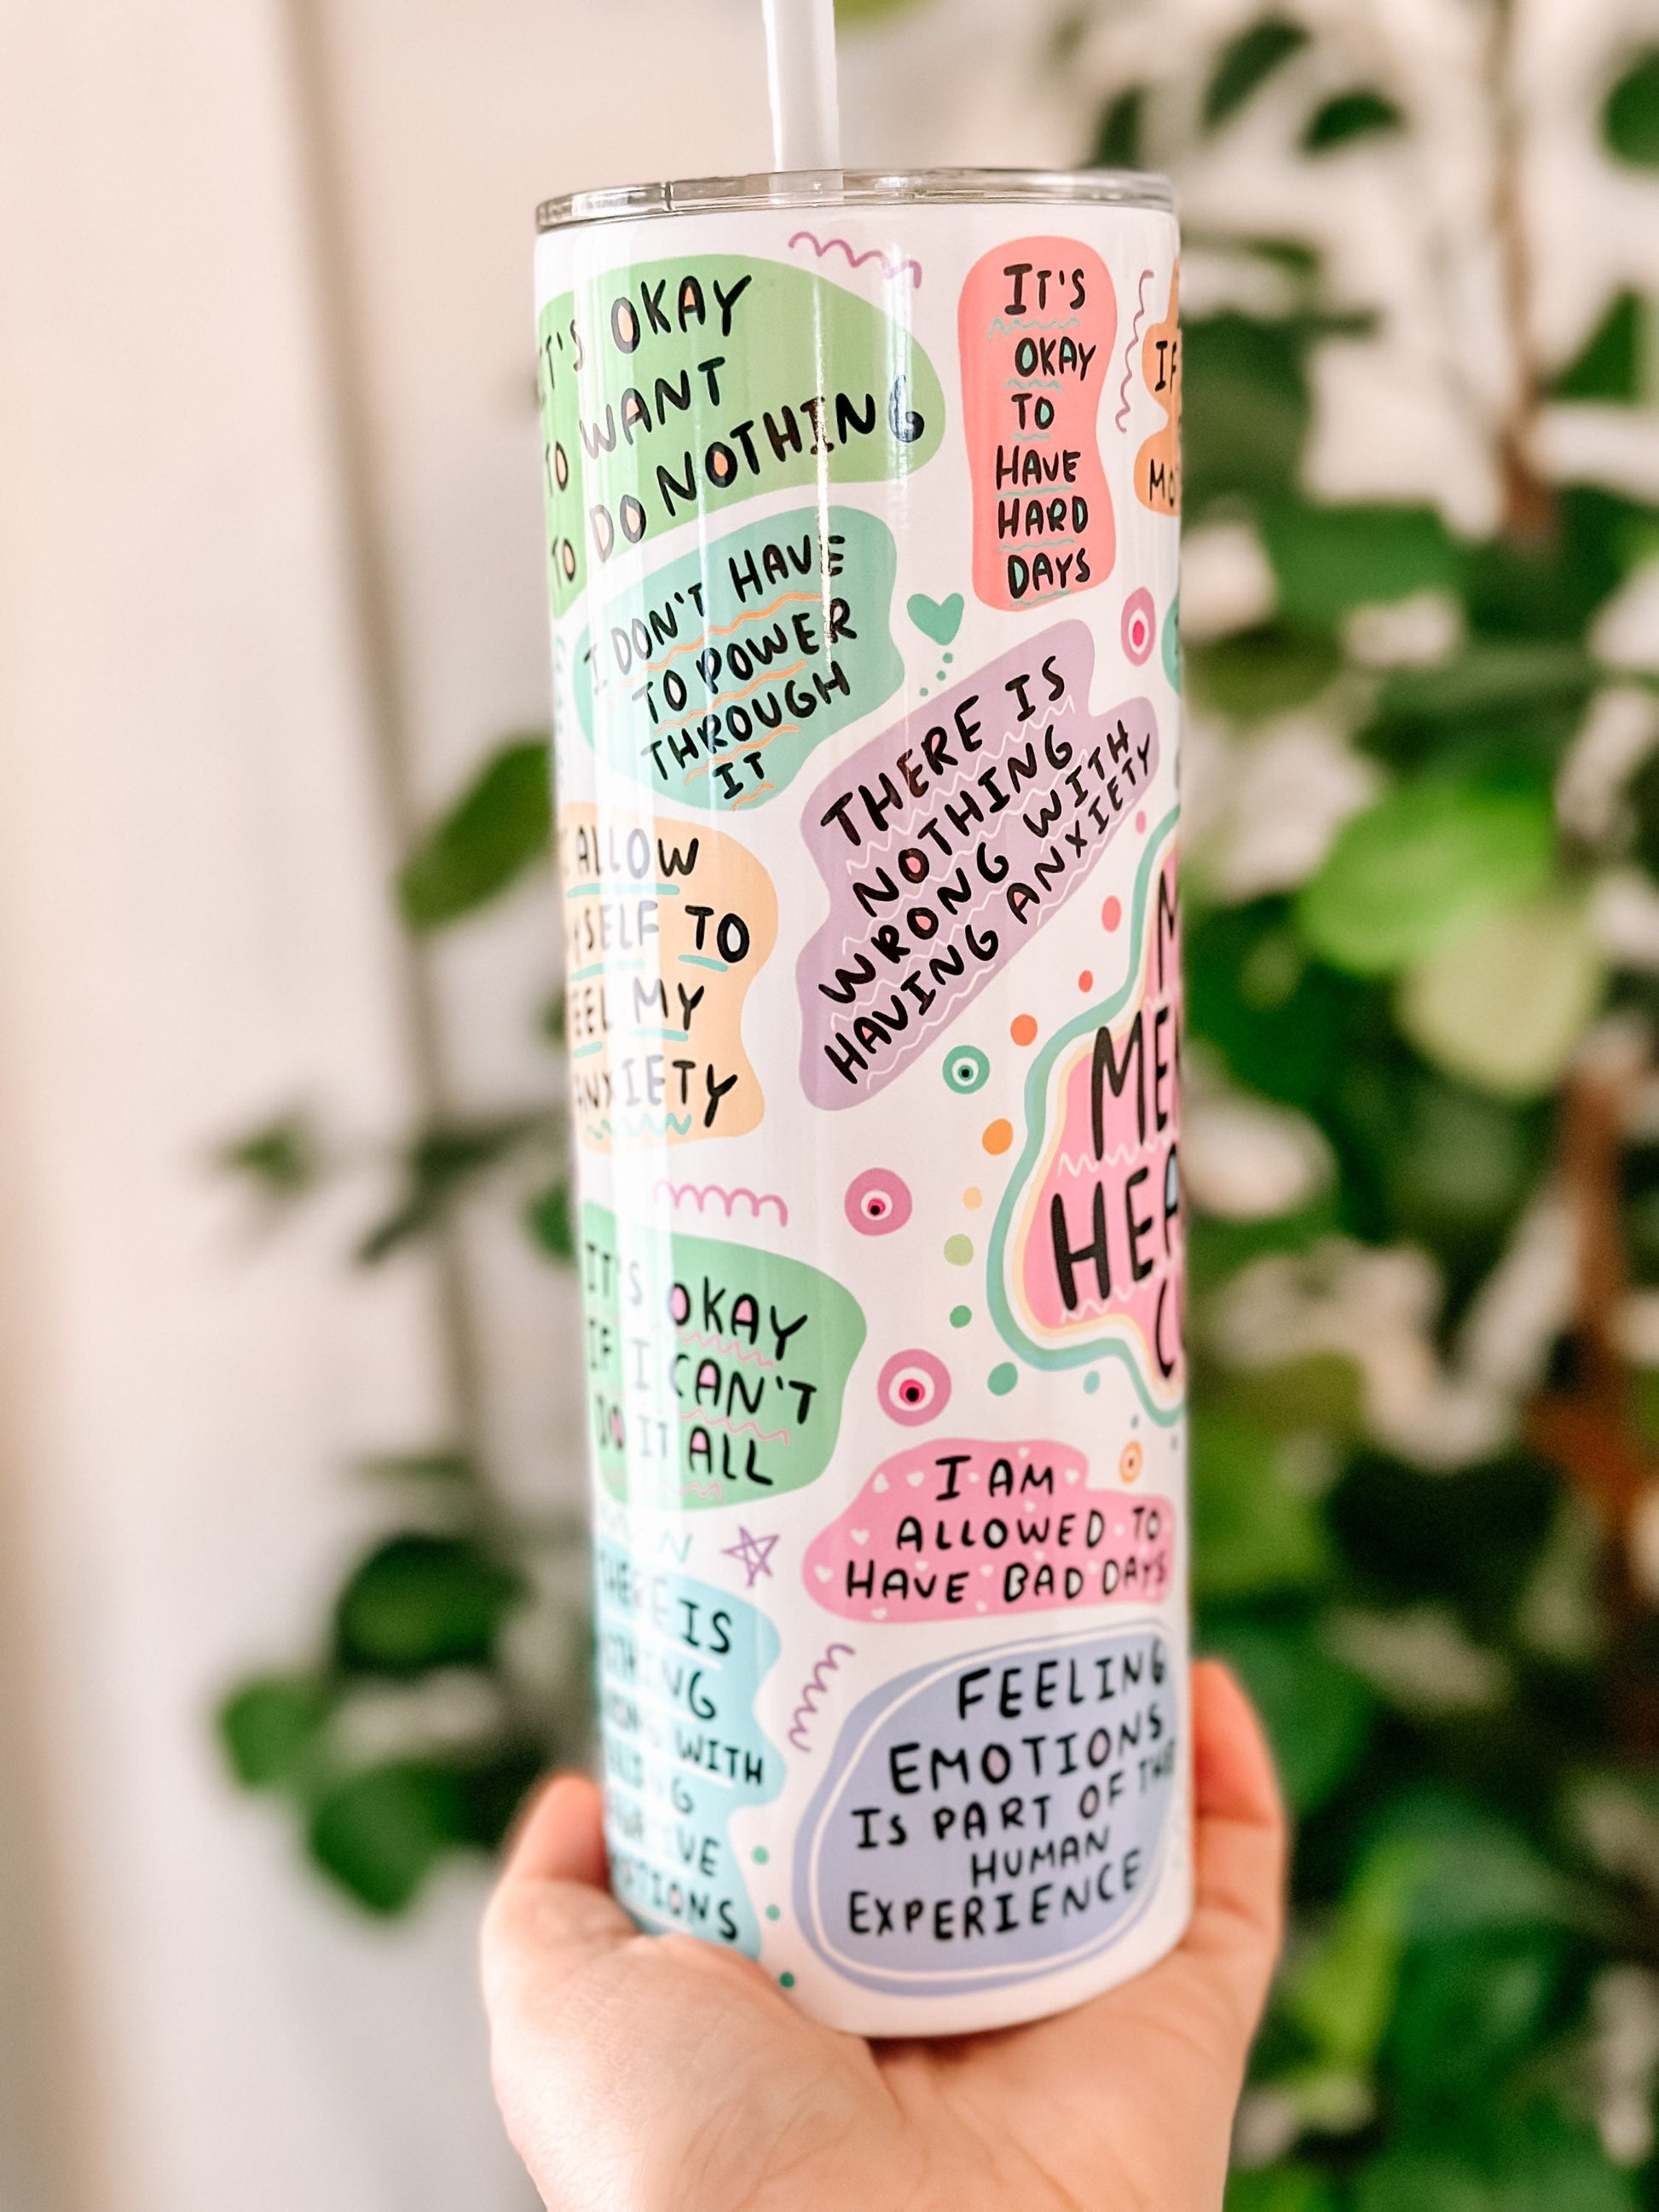 IT'S OKAY
TO WANT
TO DO NOTHING
IT'S
OKAY
TO
HAVE
HARD
DAYS
IF
I DON'T HAVE
TO POWER
THROUGH
IT
THERE IS
NOTHING
WRONG WITH
HAVING ANXIETY
ALLOW
MYSELF TO
FEEL MY
ANXIETY
IT'S OKAY
IF I CAN'T
DO IT ALL
I AM
ALLOWED TO
HAVE BAD DAYS
THERE IS
NOTHING
WRONG WITH
FEELING
NEGATIVE
EMOTIONS
FEELING
EMOTIONS
IS PART OF THE
HUMAN
EXPERIENCE